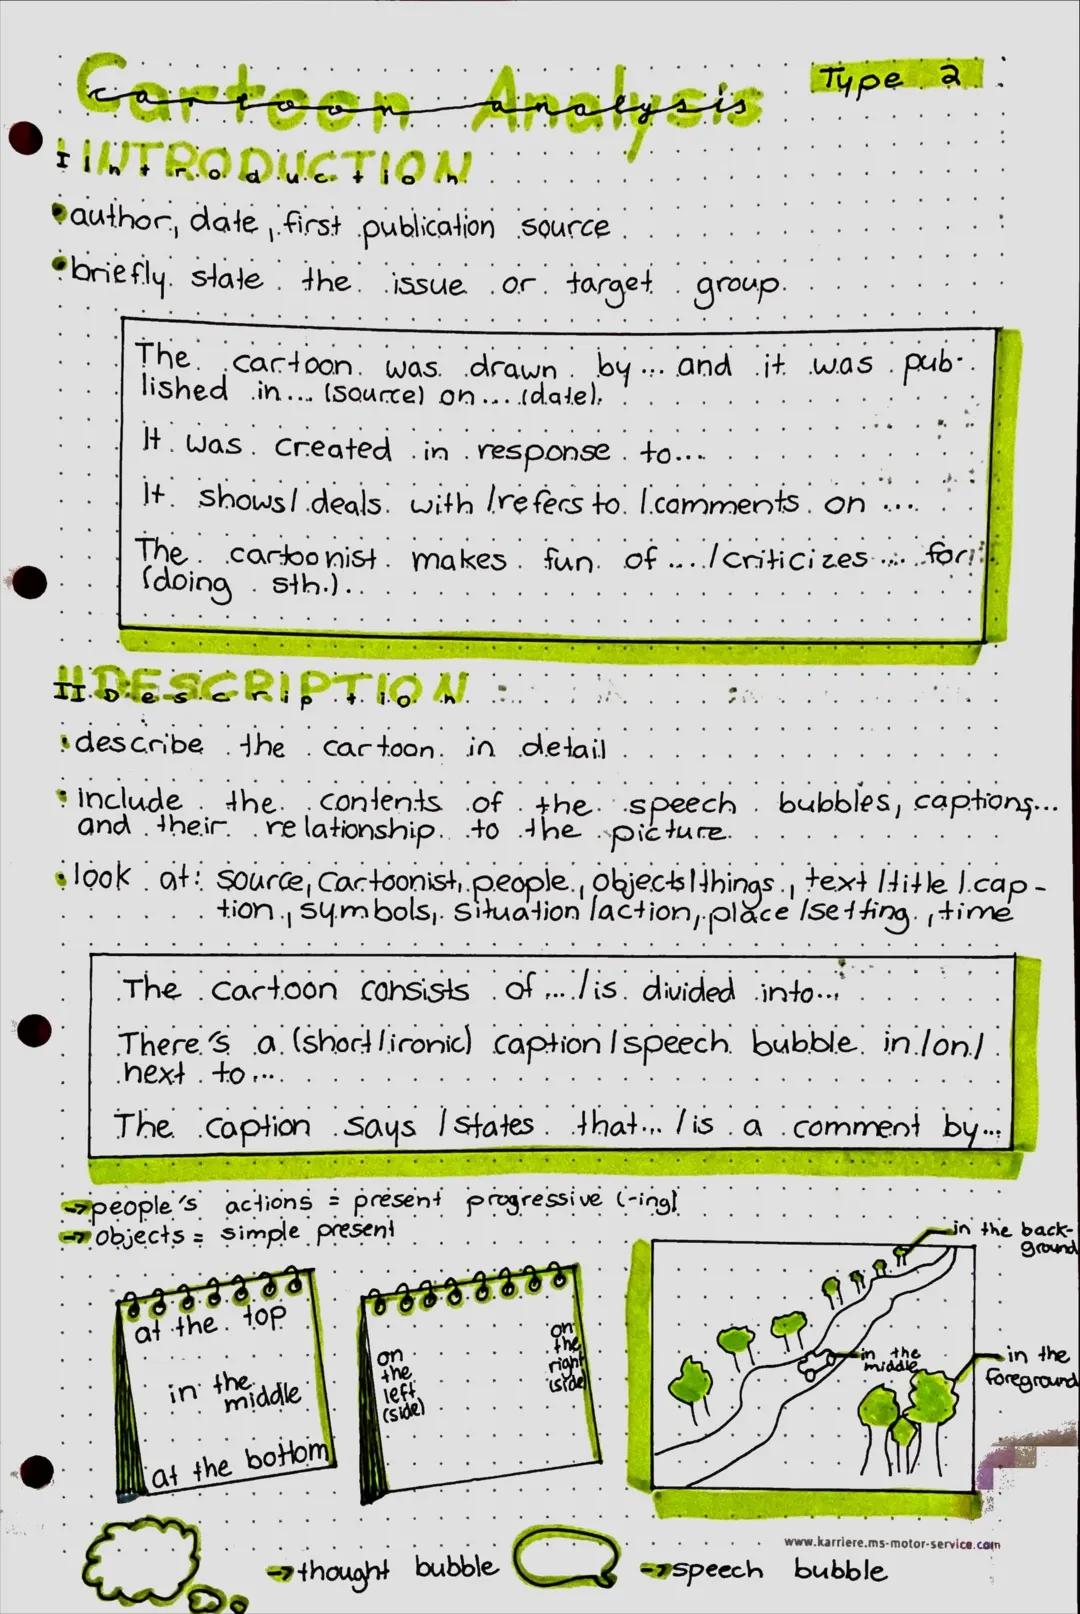 Cartoon Analysis
cartoon analysis
Type 2
I INTRODUCTION
Introduction
author, date, first publication source
briefly state the issue or target group.
The cartoon was drawn by... and it was pub-
lished in... (source) on... (date).
It was created in response to...
It shows/ deals with /refers to /comments on ...
The cartoonist makes fun of .../criticizes ... for
(doing sth.)..
II DESCRIPTION
II Description
describe the cartoon in detail
include the contents of the speech bubbles, captions...
and their relationship to the picture.
look at: source, cartoonist, people, objects/things, text /title /cap-
tion, symbols, situation /action, place /setting, time
The cartoon consists of... /is divided into...
There's a (short/ironic) caption/speech bubble in/on/
next to...
The caption says /states that... /is a comment by...
→people's actions = present progressive (-ing)
→objects = simple present
at the top
in the
middle
at the bottom
on
the
left
(side)
on
the
right
(side)
in the back-
ground
in the
middle
in the
foreground
→thought bubble
→speech bubble
www.karriere.ms-motor-service.com